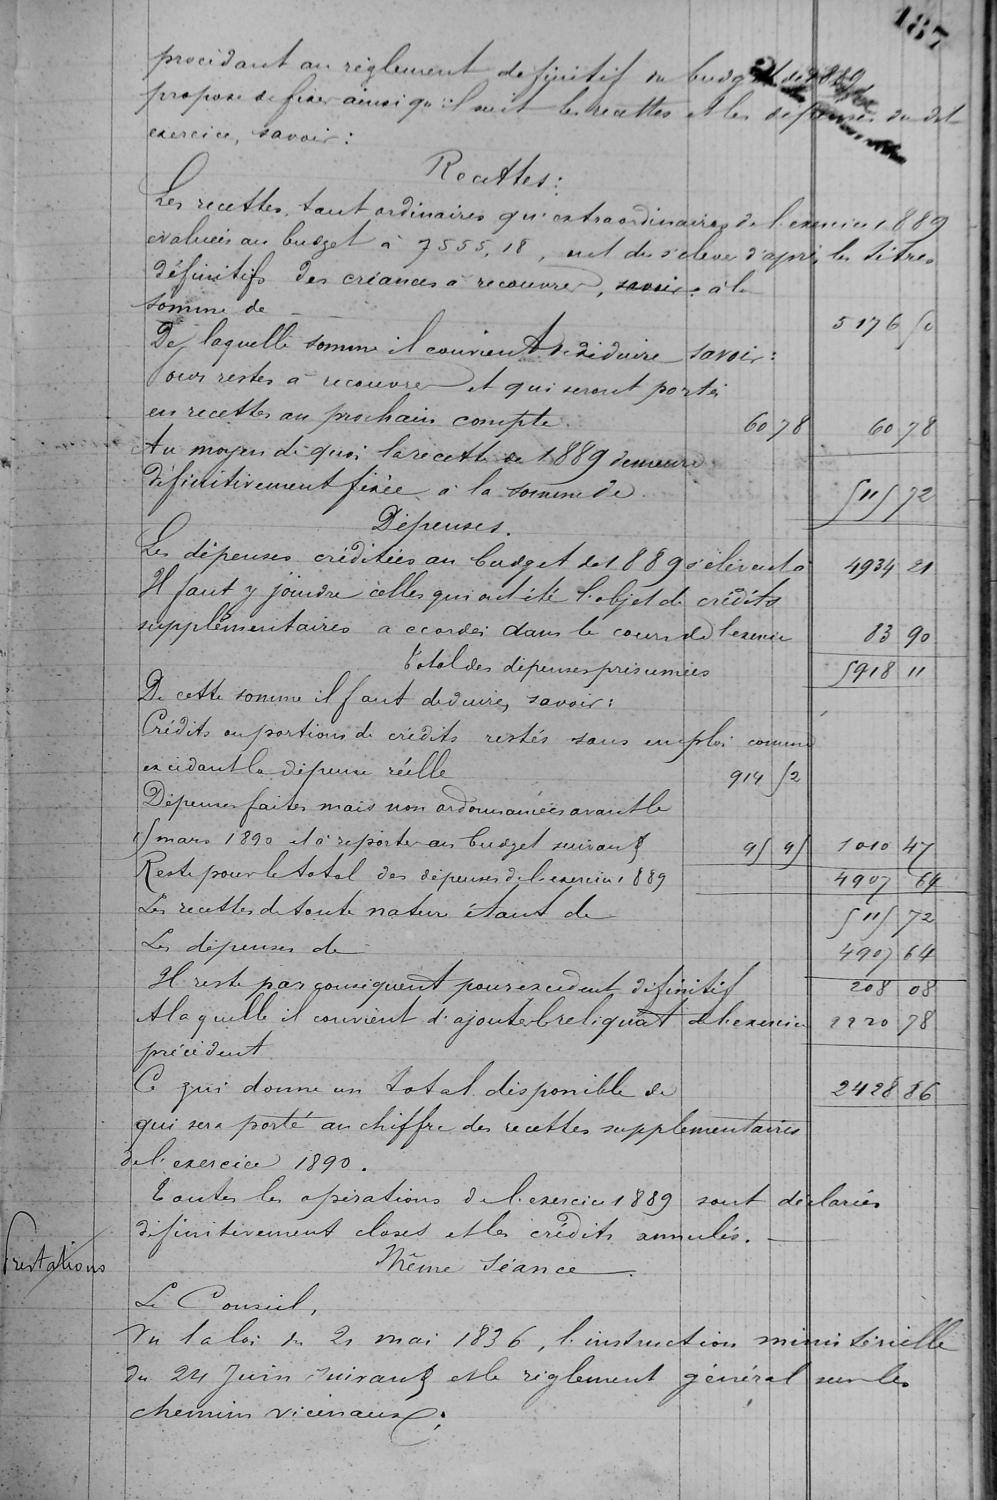 187
procédant au règlement définitif du budget de 1889
propose de fixer ainsi qu'il suit les recettes et les dépenses du dit
exercice, savoir :
Recettes :
Les recettes, tant ordinaires qu'extraordinaires de l'exercice 1889
évaluées au budget à 7555,18, ont du s'élever d'après les titres
définitifs des créances à recouvrer, savoir : à la
somme de 5176 50
De laquelle somme il convient de déduire savoir :
Pour restes à recouvrer et qui seront portés
en recettes au prochain compte. 60 78 60 78
Au moyen de quoi la recette de 1889 demeure
définitivement fixée à la somme de 5115 72
Dépenses.
Les dépenses créditées au budget de 1889 s'élèvent à 4934 21
Il faut y joindre celles qui ont été l'objet de crédits
supplémentaires accordés dans le cours de l'exercice 83 90
Total des dépenses présumées 5918 11
De cette somme il faut déduire, savoir :
Crédits ou portions de crédits restés sans emploi comme
excédant la dépense réelle 914 52
Dépenses faites mais non ordonnancées avant le
15 mars 1890 et à reporter au budget suivant 95 95 1010 47
Reste pour le total des dépenses de l'exercice 1889 4907 64
Les recettes de toute nature étant de 5115 72
Les dépenses de 4907 64
Il reste par conséquent pour excédent définitif 208 08
A laquelle il convient d'ajouter le reliquat de l'exercice 2220 78
précédent
Ce qui donne un total disponible de 2428 86
qui sera porté au chiffre des recettes supplémentaires
de l'exercice 1890.
Toutes les opérations de l'exercice 1889 sont déclarées
définitivement closes et les crédits annulés.
Même Séance
Prestations
Le Conseil,
Vu la loi du 21 mai 1836, l'instruction ministérielle
du 24 Juin suivant et le règlement général sur les
chemins vicinaux ;